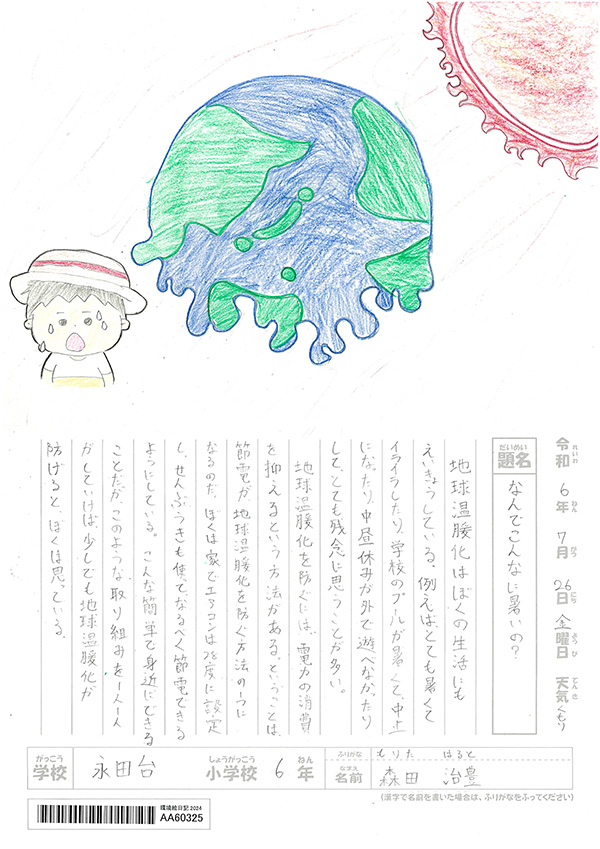 令和6年7月26日金曜日 天気くもり
れいわ ねん がつ にち ようび てんき
だいめい
題名 なんでこんなに暑いの？
地球温暖化はぼくの生活にも
えいきょうしている。例えば、とても暑くて
イライラしたり、学校のプールが暑くて、中止
になったり、中昼休みが外で遊べなかったり
して、とても残念に思うことが多い。
地球温暖化を防ぐには、電力の消費
を抑えるという方法がある。ということは、
節電が地球温暖化を防ぐ方法の一つに
なるのだ。ぼくは家でエアコンは28度に設定
し、せんぷうきも使って、なるべく節電できる
ようにしている。こんな簡単で身近にできる
ことだが、このような取り組みを一人一人
がしていけば、少しでも地球温暖化が
防げると、ぼくは思っている。
がっこう しょうがっこう ねん ふりがな もりた はると
学校 永田台 小学校 6年 なまえ 名前 森田 治豊
(漢字で名前を書いた場合は、ふりがなをふってください)
環境絵日記2024
AA60325